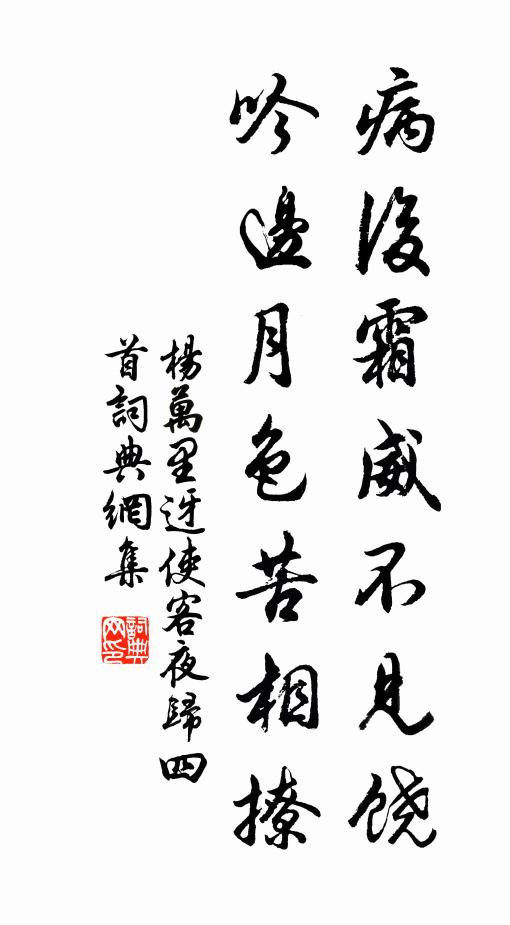 病後霜威不見饒
吟邊月色苦相撩
楊萬里迓使客夜歸四
首詞典網集
詞典
网印